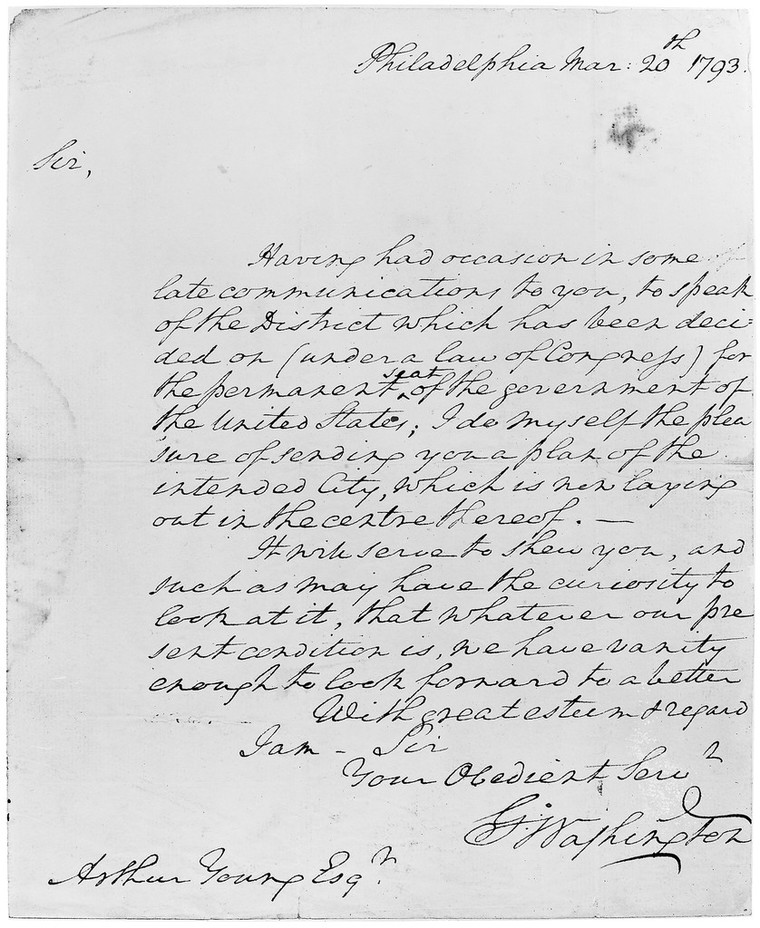 Philadelphia Mar: 20th 1793.
Sir,
Having had occasion in some
late communications to you, to speak
of the District which has been deci-
ded on (under a law of Congress) for
the permanent seat of the government of
the United States; I do myself the plea
sure of sending you a plan of the
intended City, which is now laying
out in the centre thereof. —
It will serve to shew you, and
such as may have the curiosity to
look at it, that whatever our pre
sent condition is, we have vanity
enough to look forward to a better
With great esteem & regard
I am – Sir
Your Obedient Servt
Go: Washington
Arthur Young Esqr.